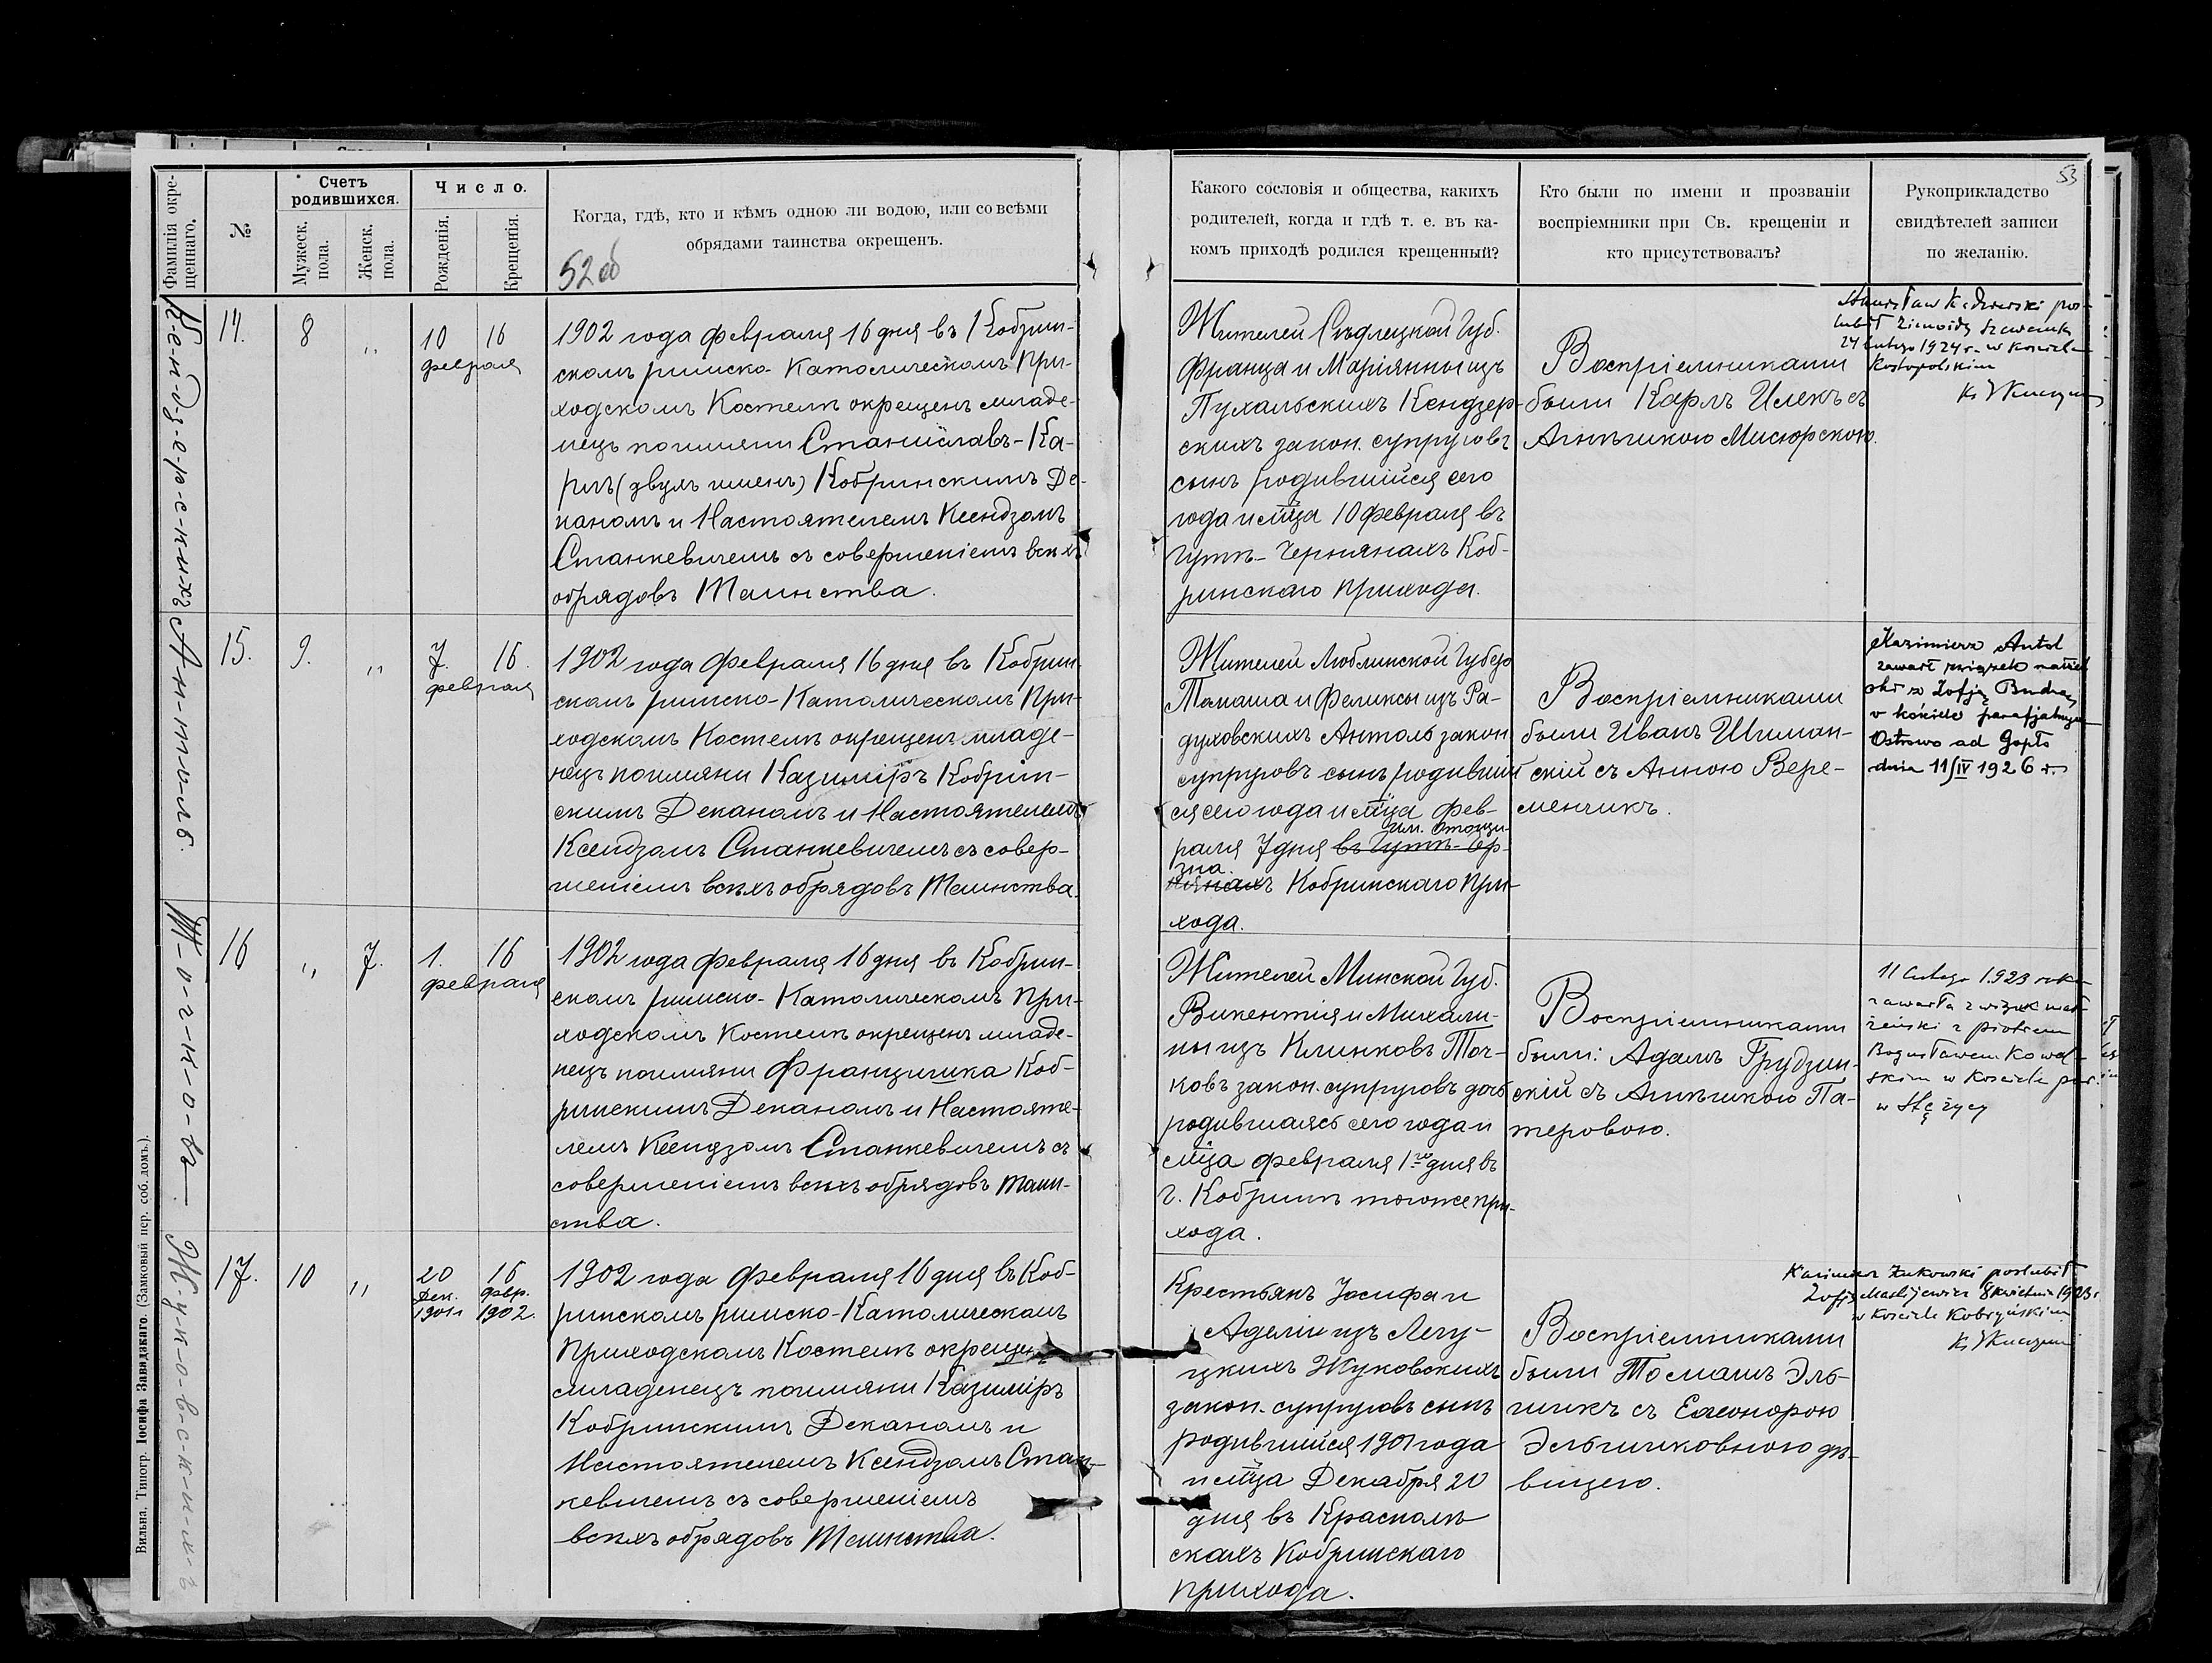 Фамилія окре-
щеннаго.
№
Счетъ
родившихся.
Мужеск.
пола.
Женск.
пола.
Число.
Рожденія.
Крещенія.
Когда, гдѣ, кто и кѣмъ одною ли водою, или со всѣми
обрядами таинства окрещенъ.
52 об
К-е-н-д-з-е-р-с-к-и-хъ
14.
8
"
10 16
февраля
1902 года февраля 16 дня въ Кобрин-
скомъ римско-Католическомъ При-
ходскомъ Костелѣ окрещенъ младе-
нецъ по имяни Станиславъ-Ка-
рлъ (двухъ именъ) Кобринскимъ Де-
каномъ и Настоятелемъ Ксендзомъ
Станкевичемъ съ совершеніемъ всѣхъ
обрядовъ Таинства.
А-н-т-о-л-ь.
15.
9.
"
7. 16.
февраля
1902 года февраля 16 дня въ Кобрин-
скомъ римско-Католическомъ При-
ходскомъ Костелѣ окрещенъ младе-
нецъ по имяни Казиміръ Кобрин-
скимъ Деканомъ и Настоятелемъ
Ксендзомъ Станкевичемъ съ совер-
шеніемъ всѣхъ обрядовъ Таинства.
Т-о-ч-к-о-въ
16
"
7.
1. 16
февраля
1902 года февраля 16 дня въ Кобрин-
скомъ римско-Католическомъ При-
ходскомъ Костелѣ окрещенъ младе-
нецъ по имяни Францишка Коб-
ринскимъ Деканомъ и Настояте-
лемъ Ксендзомъ Станкевичемъ съ
совершеніемъ всѣхъ обрядовъ Таин-
ства.
Ж-у-к-о-в-с-к-и-х-ъ
17.
10
"
20 16
Дек. февр.
1901 г. 1902.
1902 года февраля 16 дня въ Коб-
ринскомъ римско-Католическомъ
Приходскомъ Костелѣ окрещенъ
младенецъ по имяни Казиміръ
Кобринскимъ Деканомъ и
Настоятелемъ Ксендзомъ Стан-
кевичемъ съ совершеніемъ
всѣхъ обрядовъ Таинства.
Вильна. Типогр. Іосифа Завадзкаго. (Замковый пер. соб. домъ.).
53
Какого сословія и общества, какихъ
родителей, когда и гдѣ т. е. въ ка-
комъ приходѣ родился крещенный?
Кто были по имени и прозваніи
воспріемники при Св. крещеніи и
кто присутствовалъ?
Рукоприкладство
свидѣтелей записи
по желанію.
Жителей Сѣдлецкой Губ.
Франца и Маріянны изъ
Пухальскихъ Кендзер-
скихъ закон. супруговъ
сынъ родившійся сего
года и мца 10 февраля въ
Гутѣ-Чернянахъ Коб-
ринскаго прихода.
Воспріемниками
были Карлъ Илекъ съ
Агнѣшкою Мисюрскою.
24 lutego 1924 r. w kościele
Kostopolskim
Жителей Люблинской Губер
Томаша и Феликсы изъ Ра-
духовскихъ Антоль закон
супруговъ сынъ родивший
ся сего года и мца фев-
раля 7 дня въ Гутѣ-Чер-
нянахъ Кобринскаго При-
хода.
Воспріемниками
были Иванъ Шиман-
скій съ Анною Вере-
менчикъ.
Kazimierz Antol
zawarł związek małżeń
ski z Zofją Budna
w kościele parafjalnym
Ostrowo ad Gopło
dnia 11/IV 1926 r.
Жителей Минской Губ.
Викентія и Михали-
ны изъ Климковъ Точ-
ковъ закон. супруговъ дочь
родившаяся сего года и
мца февраля 1го дня въ
г. Кобринѣ тогоже при-
хода.
Воспріемниками
были: Адамъ Грудзин-
скій съ Агнѣшкою Па-
теровою.
11 lutego 1923 roku
zawarła związek mał-
żeński z Piotrem
Bogusławem Kowal-
skim w Kościele par.
w Stężycy
Крестьянъ Іосифа и
Аделіи изъ Легу-
цкихъ Жуковскихъ
закон. супруговъ сынъ
родившійся 1901 года
и мца Декабря 20
дня въ Красномъ
скахъ Кобринскаго
прихода.
Воспріемниками
были Томашъ Эль-
шикъ съ Елеонорою
Эльшиковною дѣ-
вицею.
Kazimierz Żukowski poślubił
Zofję Maciejewicz 8 kwietnia 1923 r.
w Kościele Kobryńskim